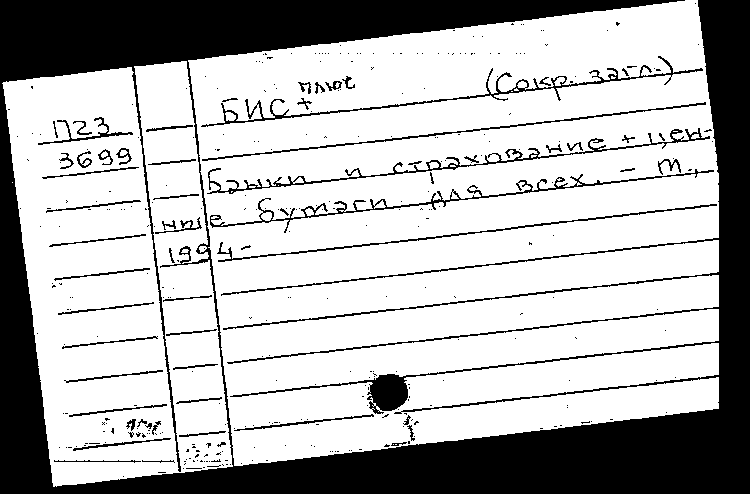 П23
3699
плюс
БИС + (Сокр. загл.)
Банки и страхование + цен-
ные бумаги для всех. - М.,
1994-